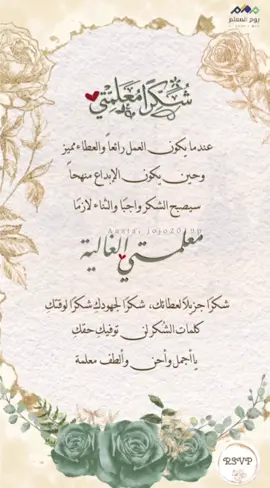 يوم المعلم
شكرًا معلمتي
عندما يكون العمل رائعاً والعطاء مميز
وحين يكون الإبداع منهجاً
سيصبح الشكر واجبًا والثناء لازمًا
معلمتي الغالية
شكرًا جزيلاً لعطائك، شكرًا لجهودكِ شكرًا لوقتكِ
كلمات الشكر لن توفيكِ حقكِ
يا أجمل وأحن وألطف معلمة
RSVP